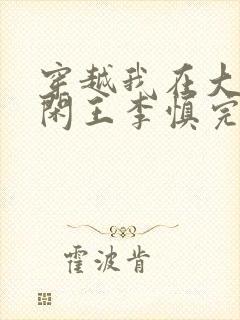 穿越我在大
闲王李慎完
霍波肯